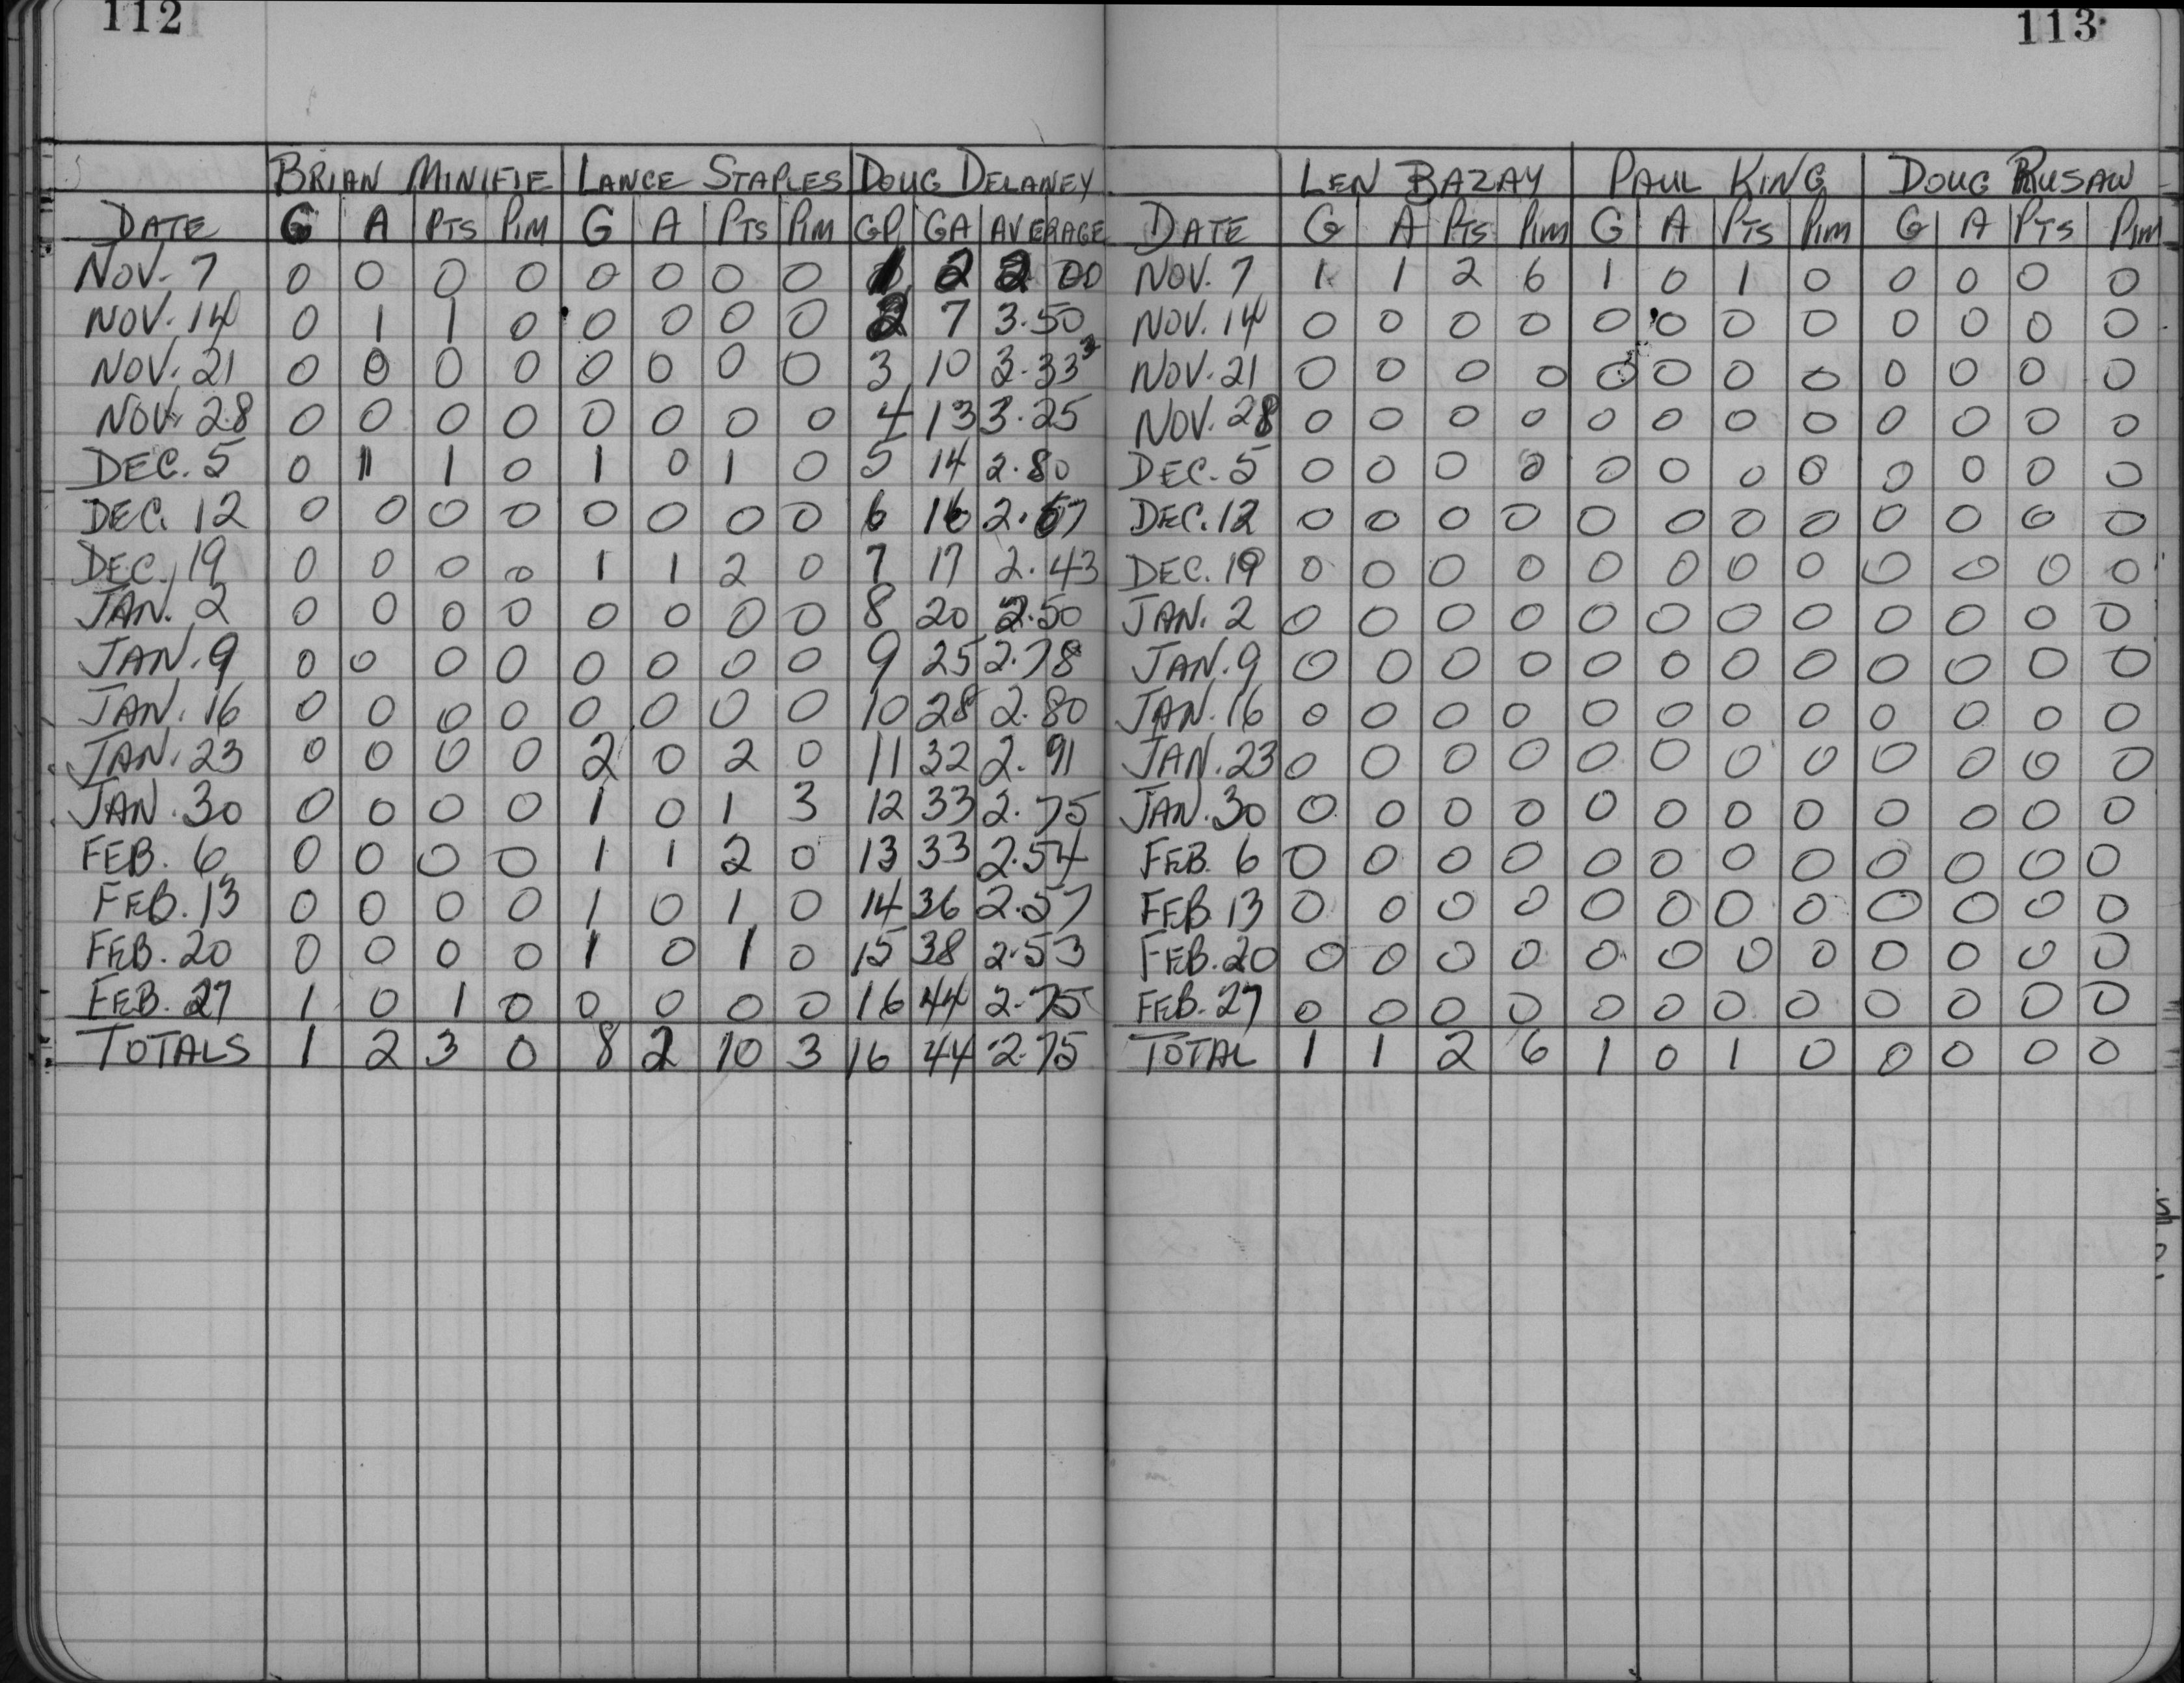 112
BRIAN MINIFIE LANCE STAPLES DOUG DELANEY
DATE G A PTS PIM G A PTS PIM GP GA AVERAGE
NOV. 7 0 0 0 0 0 0 0 0 1 2 2 00
NOV. 14 0 1 1 0 0 0 0 0 2 7 3.50
NOV. 21 0 0 0 0 0 0 0 0 3 10 3.333
NOV. 28 0 0 0 0 0 0 0 0 4 13 3.25
DEC. 5 0 1 1 0 1 0 1 0 5 14 2.80
DEC. 12 0 0 0 0 0 0 0 0 6 16 2.67
DEC. 19 0 0 0 0 1 1 2 0 7 17 2.43
JAN. 2 0 0 0 0 0 0 0 0 8 20 2.50
JAN. 9 0 0 0 0 0 0 0 0 9 25 2.78
JAN. 16 0 0 0 0 0 0 0 0 10 28 2.80
JAN. 23 0 0 0 0 2 0 2 0 11 32 2.91
JAN. 30 0 0 0 0 1 0 1 3 12 33 2.75
FEB. 6 0 0 0 0 1 1 2 0 13 33 2.54
FEB. 13 0 0 0 0 1 0 1 0 14 36 2.57
FEB. 20 0 0 0 0 1 0 1 0 15 38 2.53
FEB. 27 1 0 1 0 0 0 0 0 16 44 2.75
TOTALS 1 2 3 0 8 2 10 3 16 44 2.75
113
LEN BAZAY PAUL KING DOUG RUSAW
DATE G A PTS PIM G A PTS PIM G A PTS PIM
NOV. 7 1 1 2 6 1 0 1 0 0 0 0 0
NOV. 14 0 0 0 0 0 0 0 0 0 0 0 0
NOV. 21 0 0 0 0 0 0 0 0 0 0 0 0
NOV. 28 0 0 0 0 0 0 0 0 0 0 0 0
DEC. 5 0 0 0 0 0 0 0 0 0 0 0 0
DEC. 12 0 0 0 0 0 0 0 0 0 0 0 0
DEC. 19 0 0 0 0 0 0 0 0 0 0 0 0
JAN. 2 0 0 0 0 0 0 0 0 0 0 0 0
JAN. 9 0 0 0 0 0 0 0 0 0 0 0 0
JAN. 16 0 0 0 0 0 0 0 0 0 0 0 0
JAN. 23 0 0 0 0 0 0 0 0 0 0 0 0
JAN. 30 0 0 0 0 0 0 0 0 0 0 0 0
FEB. 6 0 0 0 0 0 0 0 0 0 0 0 0
FEB 13 0 0 0 0 0 0 0 0 0 0 0 0
FEB. 20 0 0 0 0 0 0 0 0 0 0 0 0
FEB. 27 0 0 0 0 0 0 0 0 0 0 0 0
TOTAL 1 1 2 6 1 0 1 0 0 0 0 0